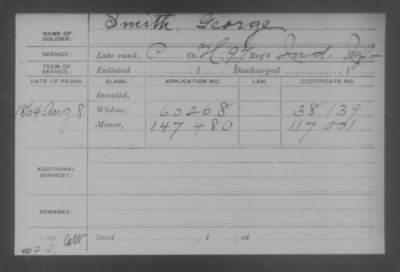 NAME OF SOLDIER: Smith, George
SERVICE: Late rank, P Co. H, 97 Reg't Ind. Inf.
TERM OF SERVICE: Enlisted , 1 Discharged , 1
DATE OF FILING. CLASS. APPLICATION NO. LAW. CERTIFICATE NO.
Invalid,
1864 Aug 8 Widow, 60268 38139
Minor, 147480
ADDITIONAL SERVICES:
REMARKS:
Died , 1 , at